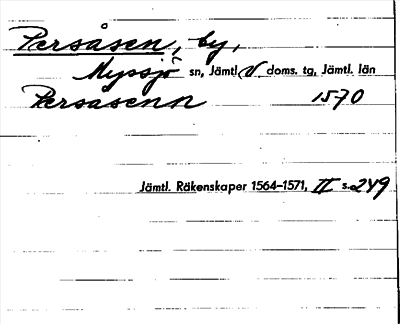 Persåsen, by,
Myssjö sn, Jämtl. V doms. tg, Jämtl. län
Persasenn 1570
Jämtl. Räkenskaper 1564–1571, II s. 249